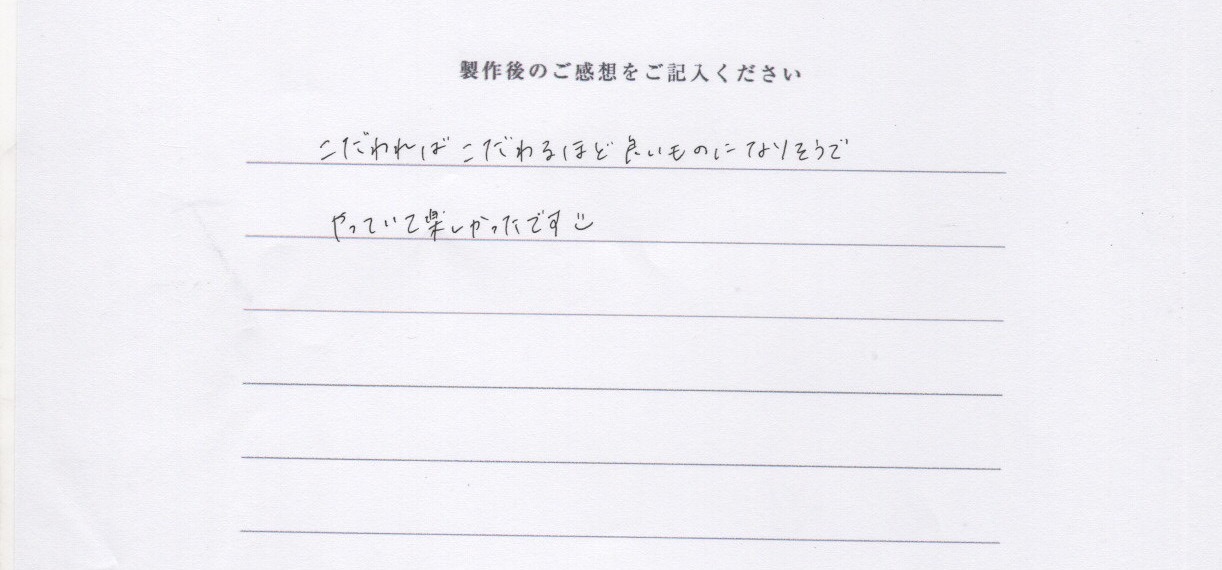 製作後のご感想をご記入ください
こだわればこだわるほど良いものになりそうで
やっていて楽しかったです